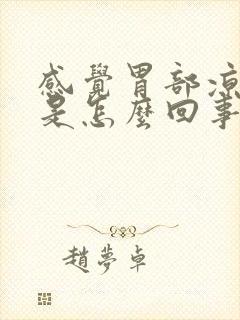 感覺胃部涼
是怎麼回事
趙夢卓